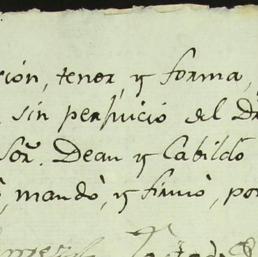 sión, tenor, y forma,
sin perjuicio del D
Sor. Dean y Cabildo
mandò, y firmò, por